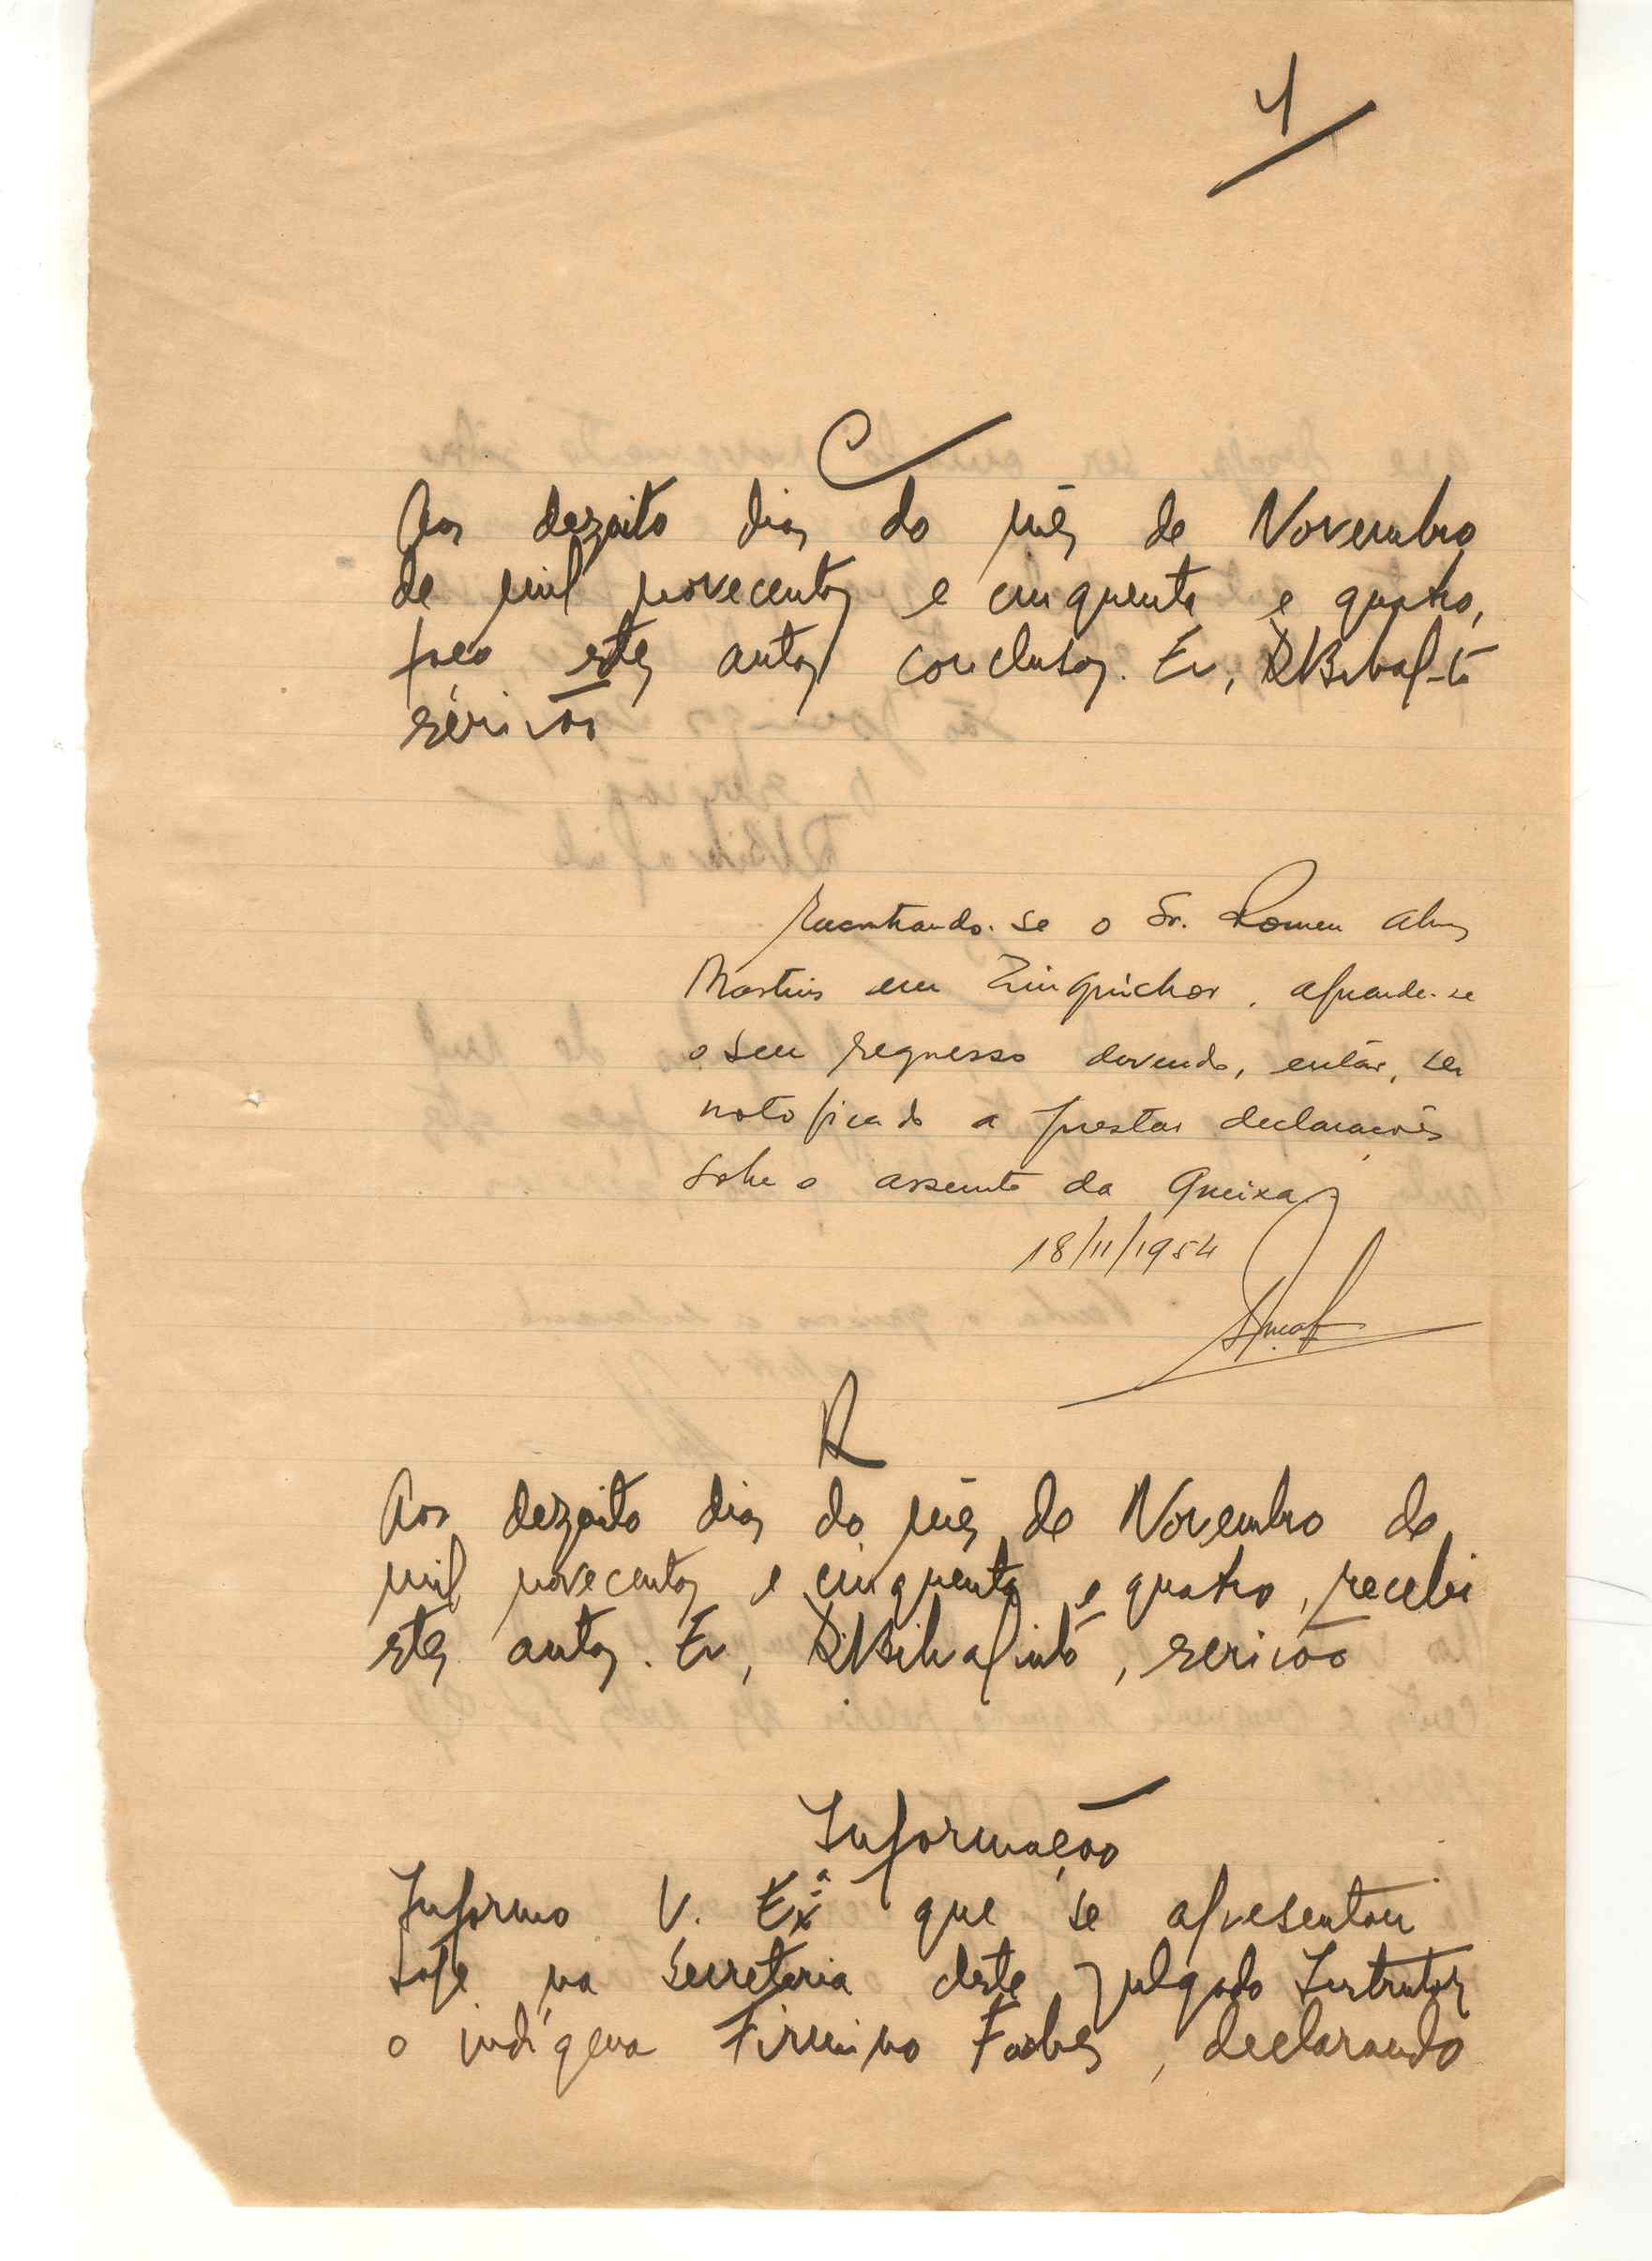 4
C
Aos dezoito dias do mês de Novembro
de mil novecentos e cinquenta e quatro,
faço estes autos conclusos. Eu,
escrivão
Encontrando-se o Sr. Romeu Alves
Martins em Zinguichor, aguarde-se
o seu regresso devendo, então, ser
notificado a prestar declarações
sobre o assunto da queixa
18/11/1954
R
Aos dezoito dias do mês de Novembro de
mil novecentos e cinquenta e quatro, recebi
estes autos. Eu, , escrivão
Informação
Informo V. Exª que se apresentou
hoje na Secretaria deste Julgado Instrutor
o indígena Firmino Fortes, declarando